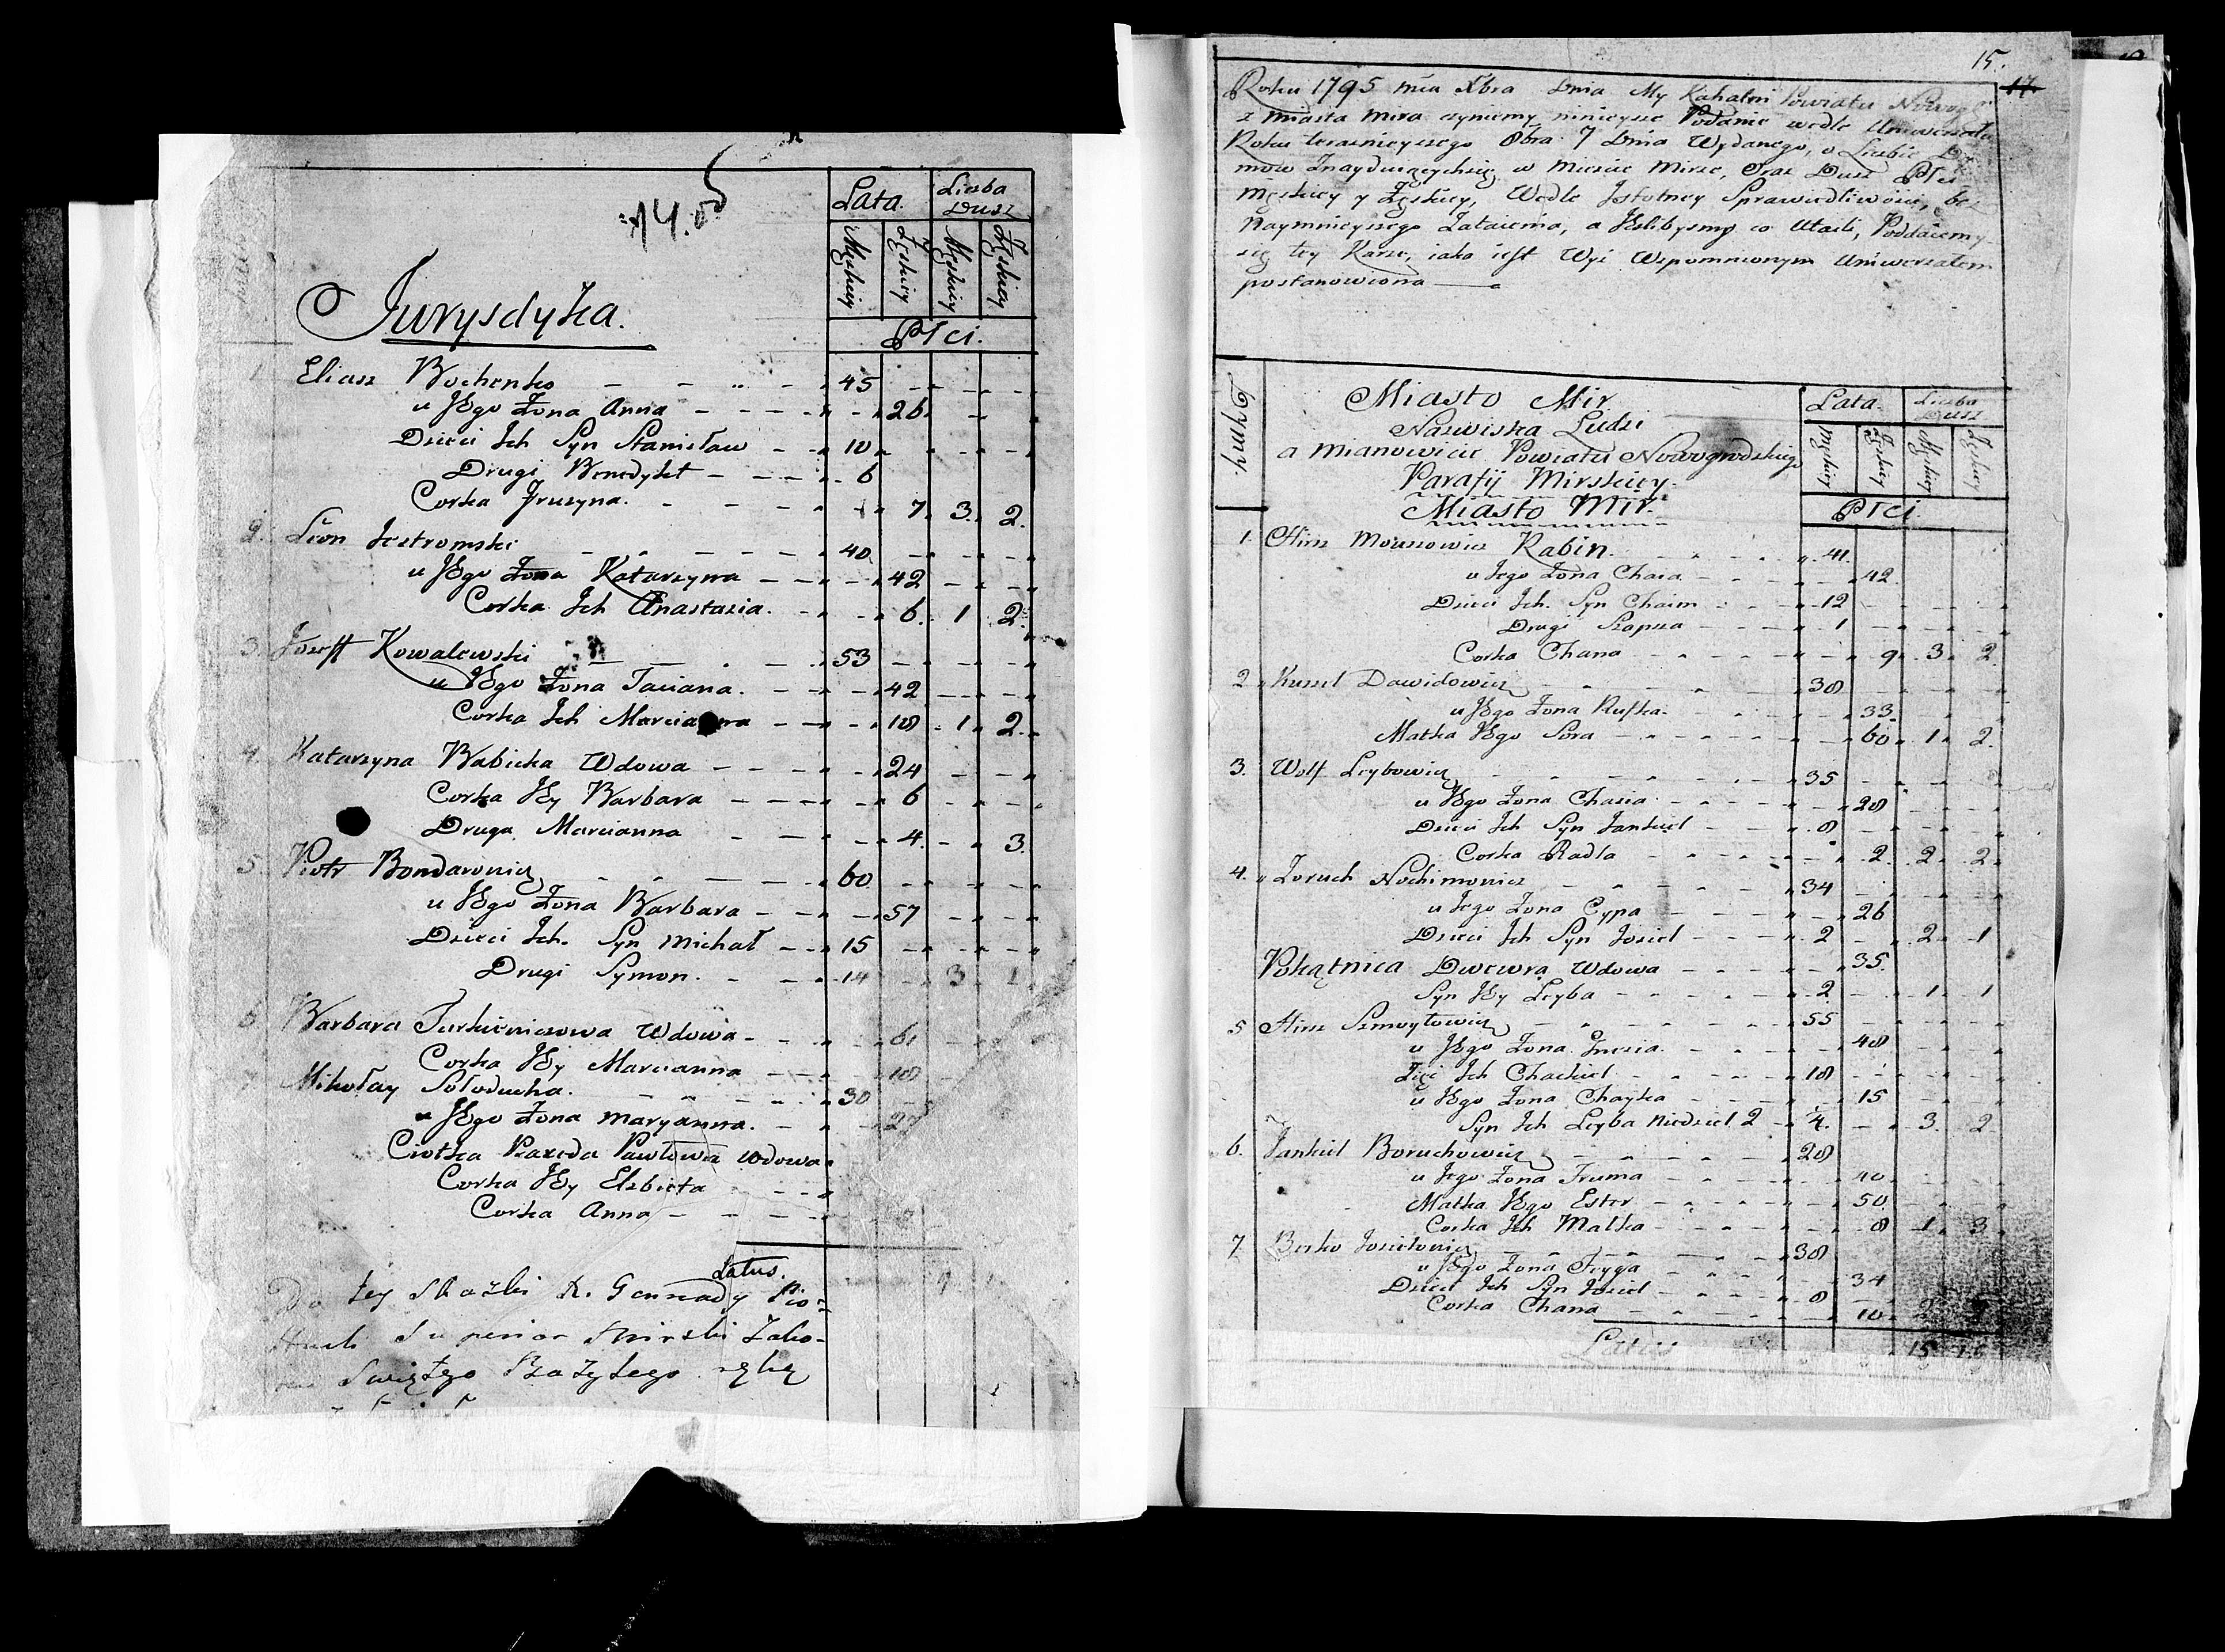 14.
Lata. Liczba Dusz
Męskiey Żęskiey Męskiey Żęskiey
Jurysdyka.
Płci.
1 Eliasz Bochenko 45
u Jego Żona Anna 26
Dzieci Ich Syn Stanisław 10
Drugi Benedykt 6
Corka Jruzyna 7 3 2
2. Leon Jestromski 40
u Jego Żona Katarzyna 42
Corka Ich Anastazia. 6 1 2
3. Jozeff Kowalewski 53
u Jego Żona Taciana. 42
Corka Ich Marcianna 18 1 2
4. Katarzyna Babicka Wdowa 24
Corka Jey Barbara 6
Druga Marcianna 4 3
5. Piotr Bondarowicz 60
u Jego Żona Barbara 57
Dzieci Ich. Syn Michał 15
Drugi Symon. 14 3 1
6 Barbara Wdowa 61
Corka Jey Marcianna 18
Mikołay Sołoducha. 30
u Jego Żona Maryanna. 27
Ciotka Pawłowa Wdowa
Corka Jey Elzbieta
Corka Anna
Latus. 9
Do tey Skazki X. Gennady
Superior Mirski Zako-
Swiętego Bazylego ręką
15.
17.
Roku 1795 mca Xbra Dnia My Kahalni Powiatu Nowog
z Miasta Mira czyniemy ninieysze Podanie wedle Uniwersału
Roku teraznieyszego 8bra 7 Dnia Wydanego, o Liczbie Do
mow Znayduiącychsię w Miescie Mirze, Oraz Dusz Płci
Męskiey y Żęskiey, Wedle Jstotney Sprawiedliwosci, bez
Naymnieyszego Zataienia, a Jeslibysmy co Utaili, Poddaiemy
się tey Karze, iaka iest Wyż Wspomnionym Uniwersałem
postanowiona
Miasto Mir
Nazwiska Ludzi
a mianowicie Powiatu Nowogrodzkiego
Parafij Mirskiey.
Miasto Mir.
Lata. Liczba Dusz
Męskiey Żęskiey Męskiey Żęskiey
Płci
1. Hirsz Mowszowicz Rabin. 41
u Jego Żona Chasia 42
Dzieci Ich. Syn Chaim 12
Drugi Szapsza 1
Corka Chana 9 3 2
2 Kussel Dawidowicz 38
u Jego Żona Rufka. 33
Matka Jego Sora 60 1 2
3. Wolf Leybowicz 35
u Jego Żona Chasia 28
Dzieci Ich Syn Jankiel 8
Corka Radla 2 2 2
4. Zoruch Nochimowicz 34
u Jego Żona Cypa 26
Dzieci Ich Syn Josiel 2 2 1
Pokątnica Dwewra Wdowa 35
Syn Jey Leyba 2 1 1
5 Hirsz Szmoyłowicz 55
u Jego Żona 48
Zięć Ich Chackiel 18
u Jego Żona Chayka 15
Syn Ich Leyba Niedziel 2 4. 3 2
6. Jankiel Boruchowicz 28
u Jego Żona Fruma 40
Matka Jego Ester 50
Corka Ich Malka 8 1 3
7. Berko Josielowicz 38
u Jego Żona Fryga 34
Dzieci Ich Syn Josiel 8
Corka Chana 10 2
Latus 15